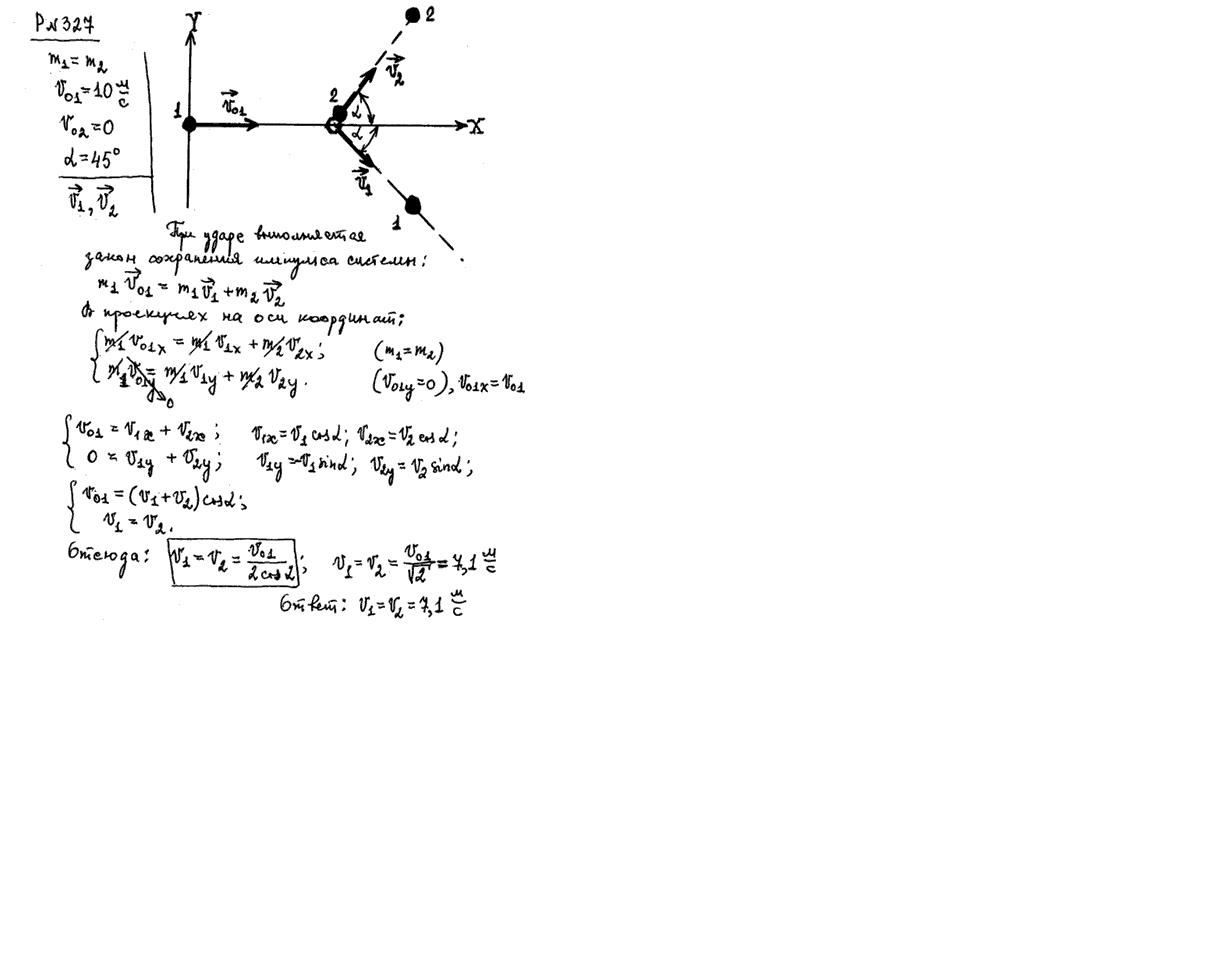 Р№327
m₁ = m₂
v₀₁ = 10 м/с
v₀₂ = 0
α = 45°
v⃗₁, v⃗₂
Y
1
v⃗₀₁
2
α
α
v⃗₂
2
X
v⃗₁
1
При ударе выполняется
закон сохранения импульса системы:
m₁v⃗₀₁ = m₁v⃗₁ + m₂v⃗₂
В проекциях на оси координат:
{ m₁v₀₁x = m₁v₁x + m₂v₂x; (m₁=m₂)
{ m₁v₀₁y = m₁v₁y + m₂v₂y. (v₀₁y=0), v₀₁x=v₀₁
0
{ v₀₁ = v₁x + v₂x; v₁x = v₁ cosα; v₂x = v₂ cosα;
{ 0 = v₁y + v₂y; v₁y = -v₁ sinα; v₂y = v₂ sinα;
{ v₀₁ = (v₁+v₂) cosα;
{ v₁ = v₂.
Отсюда: v₁ = v₂ = v₀₁/(2cosα); v₁ = v₂ = v₀₁/√2 = 7,1 м/с
Ответ: v₁ = v₂ = 7,1 м/с